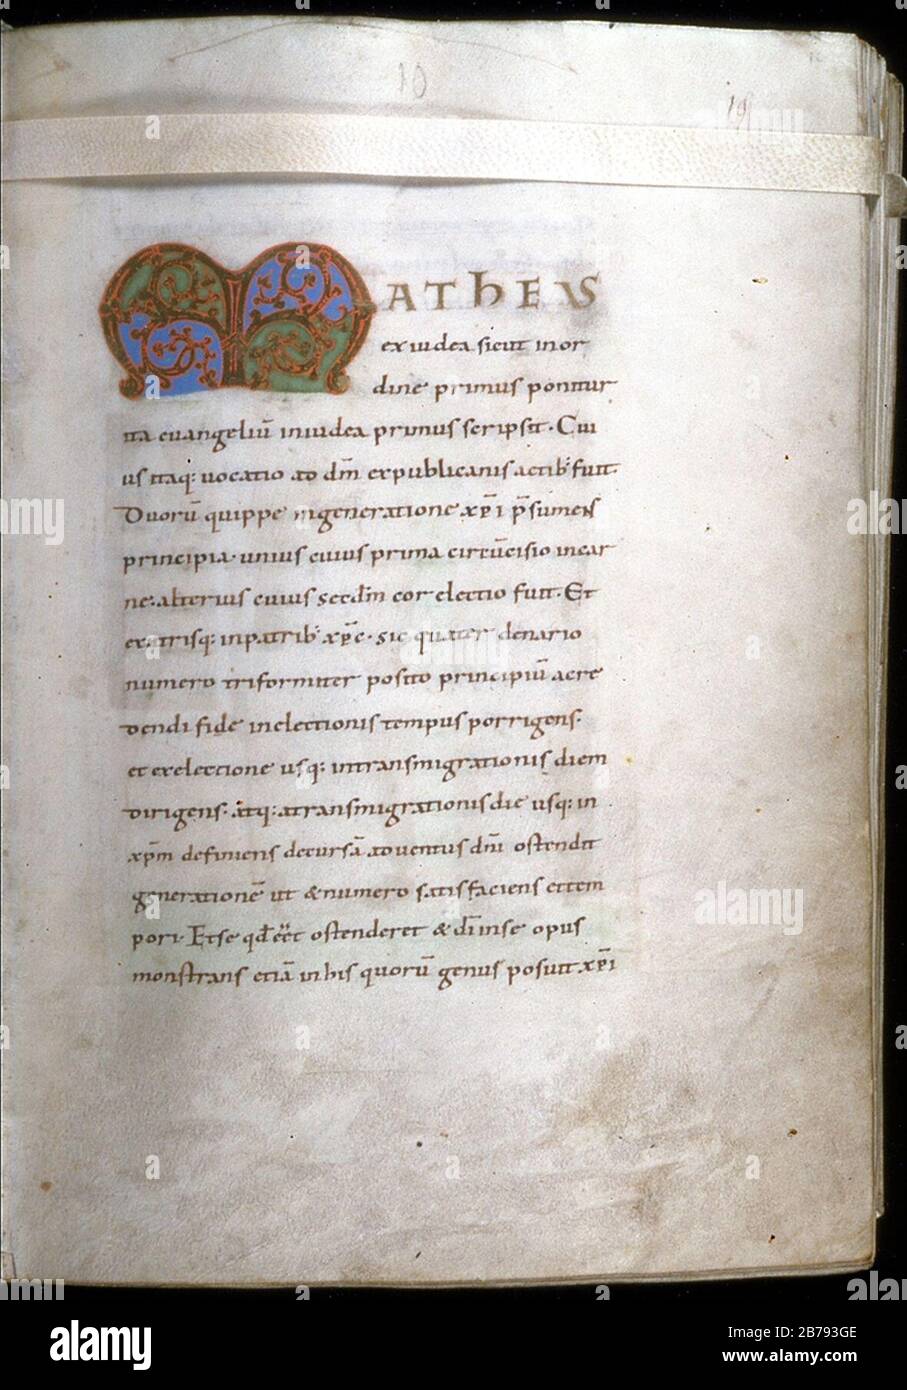 10
19
MATHEUS
ex iudea sicut in or
dine primus ponitur
ita euangeliū in iudea primus scripsit. Cui
us itaq: uocatio ad dm̄ ex publicanis actib: fuit.
Duorū quippe in generatione xp̄i p̄sumens
principia. unius cuius prima circūcisio in car
ne: alterius cuius secdm̄ cor electio fuit. Et
ex utrisq: in patrib: xp̄c. sic quater denario
numero triformiter posito principiū a cre
dendi fide in electionis tempus porrigens.
et ex electione usq: in transmigrationis diem
dirigens. atq: a transmigrationis die usq: in
xp̄m definiens decursā aduentus dn̄i ostendit
generationē ut & numero satisfaciens et tem
pori. Et se qd̄ eēt ostenderet & dī in se opus
monstrans etiā in his quorū genus posuit xp̄i
alamy
Image ID: 2B793GE
www.alamy.com